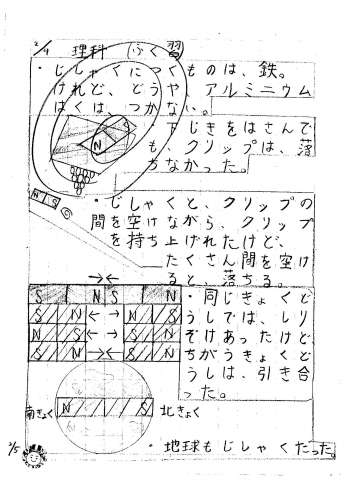 2/4 理科 (ふく習)
・じしゃくにつくものは、鉄。
けれど、どうや アルミニウム
はくは、つかない。
・下じきをはさんで
も、クリップは、落
ちなかった。
N
N S
・じしゃくと、クリップの
間を空けながら、クリップ
を持ち上げれたけど、
たくさん間を空け
ると、落ちる。
→←
S N S N
S N ←→ N S
N S ←→ S N
S N →← S N
・同じきょくど
うしでは、しり
ぞけあったけど、
ちがうきょくど
うしは、引き合
った。
南きょく N S 北きょく
2/5
・地球もじしゃくだった。